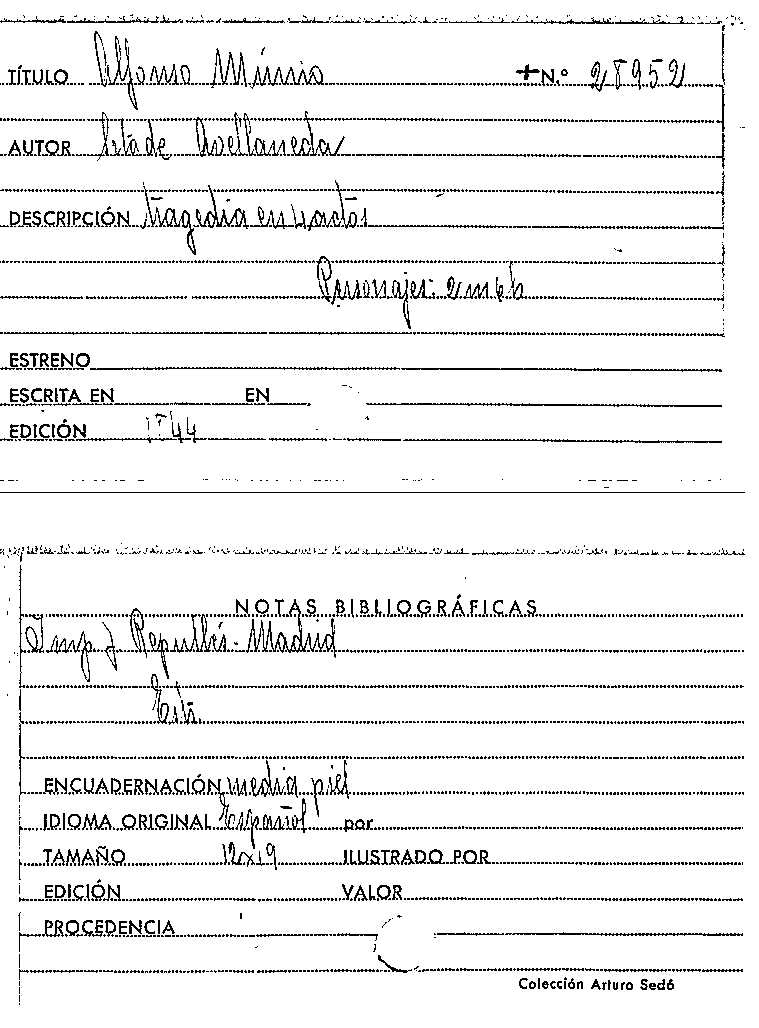 TÍTULO Alfonso Munio +N.º 28952
AUTOR Srta de Avellaneda
DESCRIPCIÓN tragedia en 4 actos
Personajes: 2 m 6 h
ESTRENO
ESCRITA EN EN
EDICIÓN 1844
NOTAS BIBLIOGRÁFICAS
Imp. J. Repullés - Madrid
ENCUADERNACIÓN media piel
IDIOMA ORIGINAL Español por
TAMAÑO 12x19 ILUSTRADO POR
EDICIÓN VALOR
PROCEDENCIA
Colección Arturo Sedó